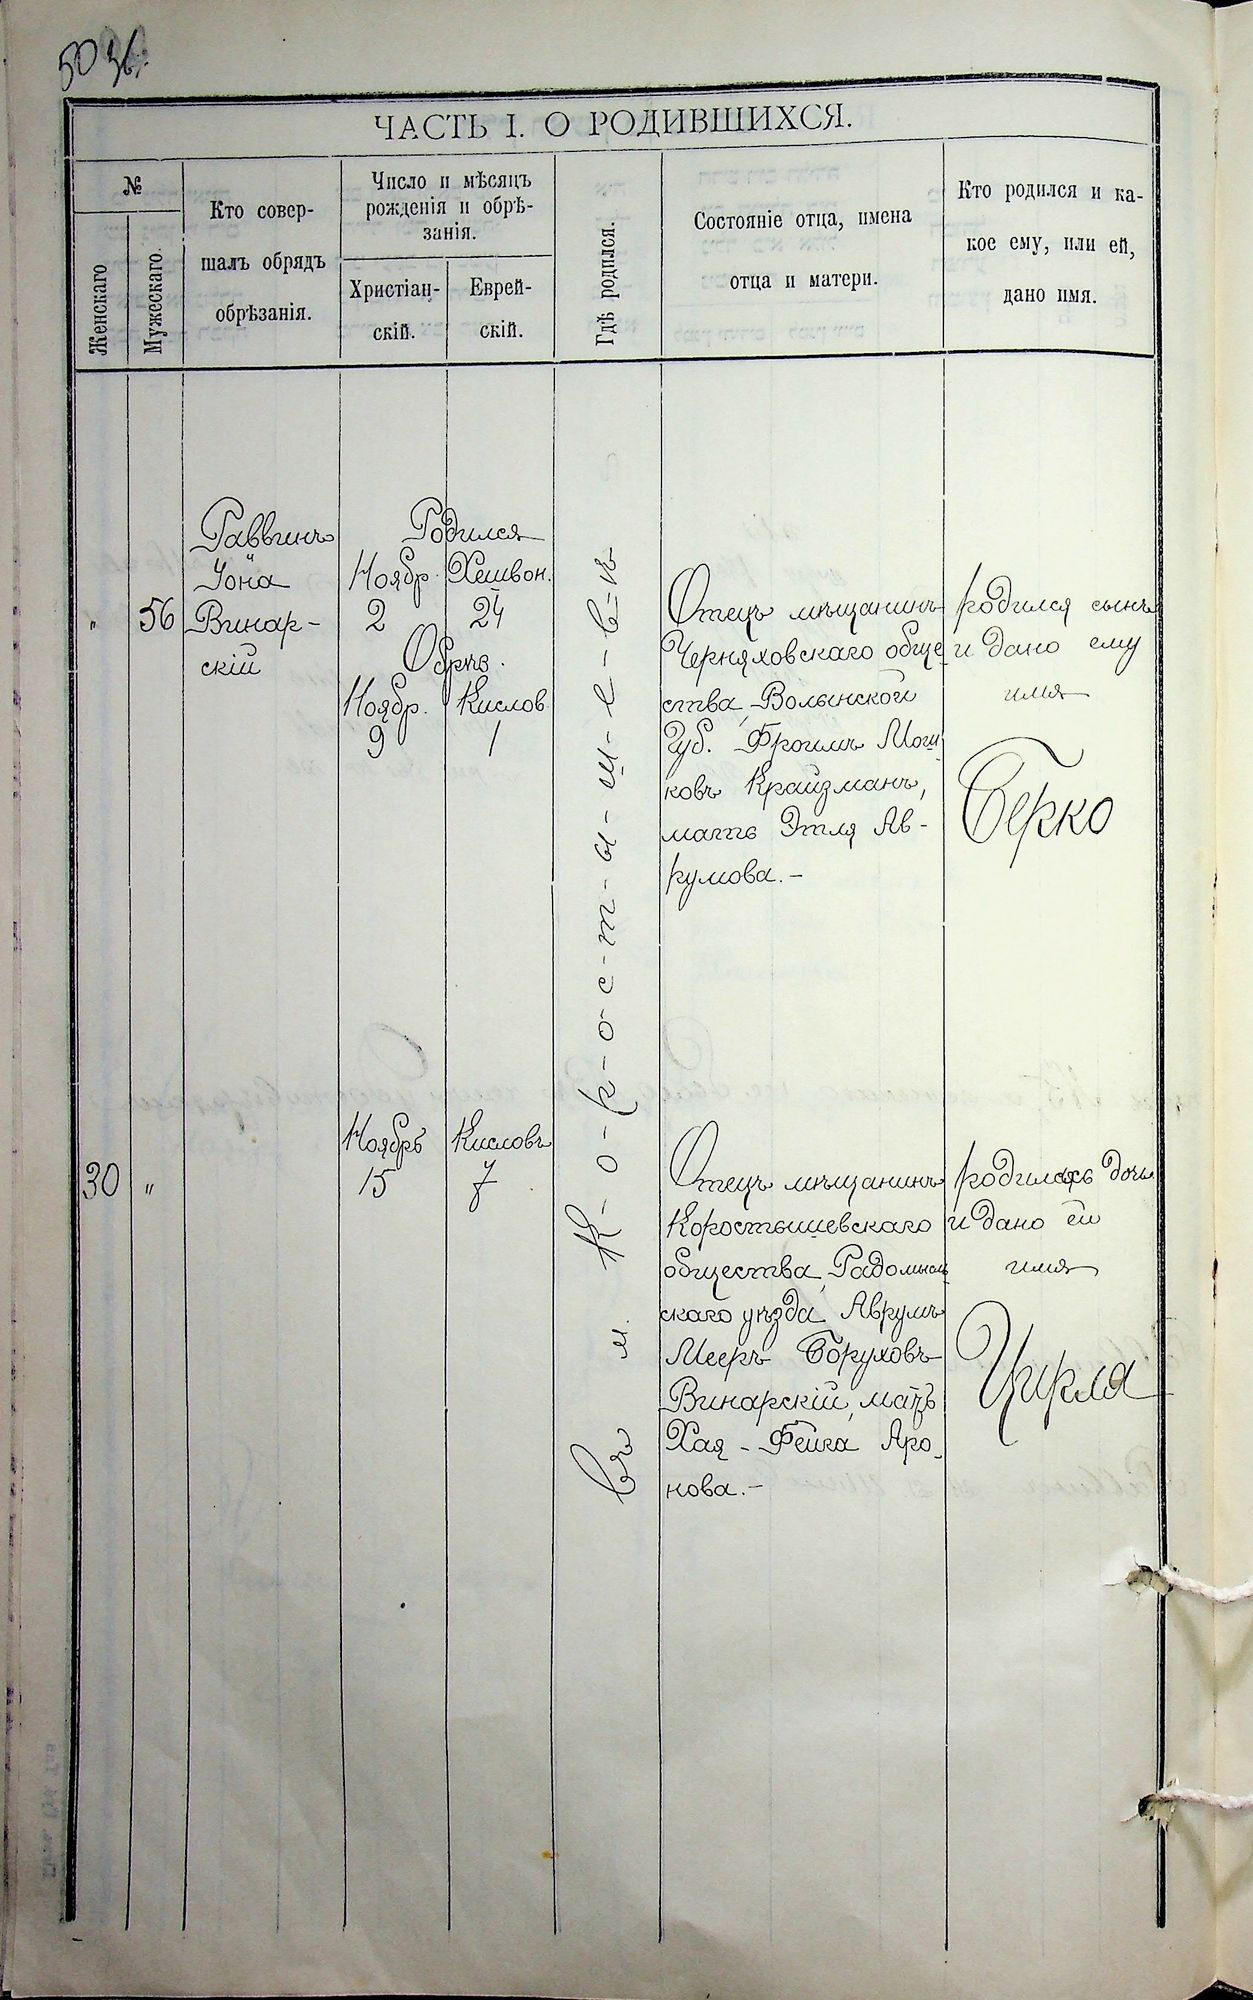 ЧАСТЬ I. О РОДИВШИХСЯ.
№
Женскаго
Мужескаго.
Кто совер-
шалъ обрядъ
обрѣзанія.
Число и мѣсяцъ
рожденія и обрѣ-
занія.
Христіан-
скій.
Еврей-
скій.
Гдѣ родился.
Состояніе отца, имена
отца и матери.
Кто родился и ка-
кое ему, или ей,
дано имя.
"
56
Раввинъ
Іона
Винар-
скій
Родился
Ноябр. Хешвон.
2 24
Обрѣз.
Ноябр. Кислов.
9 1
Въ м. К-о-р-о-с-т-ы-ш-е-в-ѣ
Отецъ мѣщанинъ
Черняховскаго обще-
ства, Волынской
Губ. Фроимъ Мош-
ковъ Крайзманъ,
мать Этля Ав-
румова.-
родился сынъ
и дано ему
имя
Берко
30
"
Ноябрь Кисловъ
15 7
Отецъ мѣщанинъ
Коростышевскаго
общества, Радомысль
скаго уѣзда Аврумъ
Мееръ Боруховъ
Винарскій, мать
Хая - Фейга Аро-
нова.-
родилась дочь
и дано ей
имя
Цирля